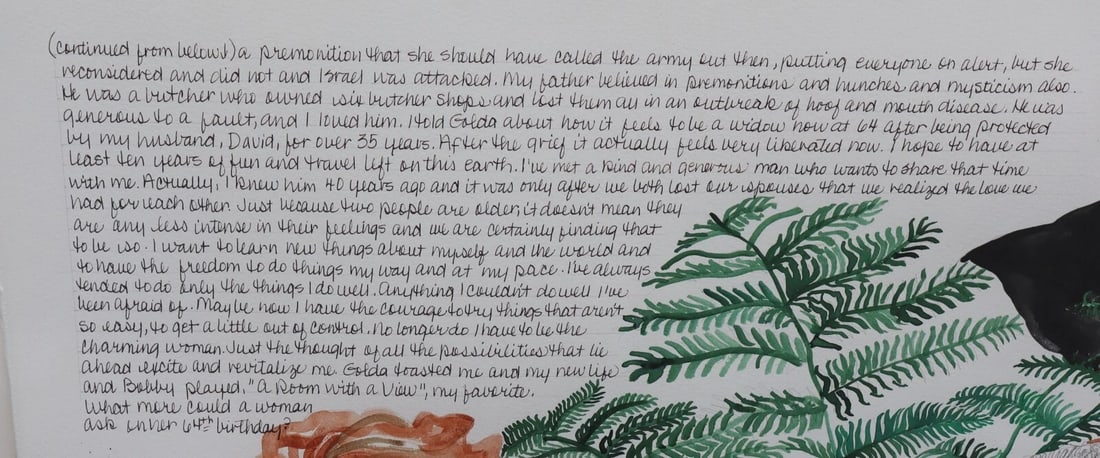 (continued from below) a premonition that she should have called the army out then, putting everyone on alert, but she
reconsidered and did not and Israel was attacked. My father believed in premonitions and hunches and mysticism also.
He was a butcher who owned six butcher shops and lost them all in an outbreak of hoof and mouth disease. He was
generous to a fault, and I loved him. I told Golda about how it feels to be a widow now at 64 after being protected
by my husband, David, for over 35 years. After the grief it actually feels very liberated now. I hope to have at
least ten years of fun and travel left on this earth. I've met a kind and generous man who wants to share that time
with me. Actually, I knew him 40 years ago and it was only after we both lost our spouses that we realized the love we
had for each other. Just because two people are older, it doesn't mean they
are any less intense in their feelings and we are certainly finding that
to be so. I want to learn new things about myself and the world and
to have the freedom to do things my way and at my pace. I've always
tended to do only the things I do well. Anything I couldn't do well I've
been afraid of. Maybe now I have the courage to try things that aren't
so easy, to get a little out of control. No longer do I have to be the
charming woman. Just the thought of all the possibilities that lie
ahead excite and revitalize me. Golda toasted me and my new life
and Bobby played, "A Room with a View", my favorite.
What more could a woman
ask on her 64th birthday?